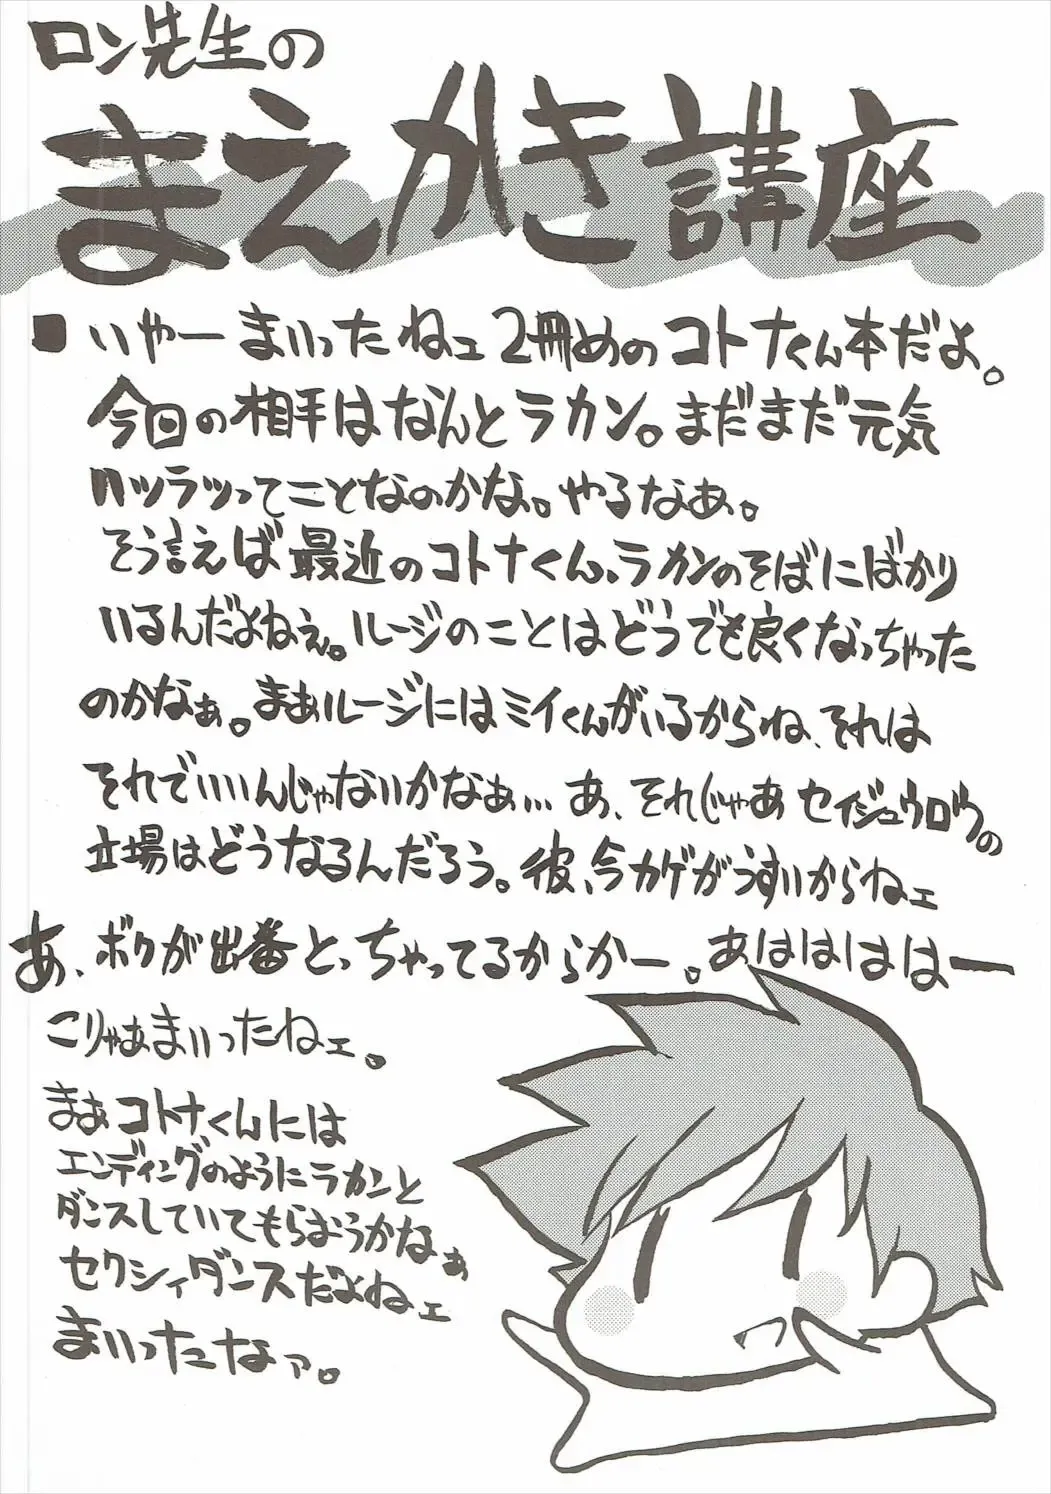 ロン先生の
まえがき講座
■いやーまいったねェ2冊めのコトナくん本だよ。
今回の相手はなんとラカン。まだまだ元気
ハツラツってことなのかな。やるなあ。
そう言えば最近のコトナくん、ラカンのそばにばかり
いるんだよねぇ。ルージのことはどうでも良くなっちゃった
のかなぁ。まあルージにはミイくんがいるからね、それは
それでいいんじゃないかなぁ…あ、それじゃあセイジュウロウの
立場はどうなるんだろう。彼、今カゲがうすいからねェ
あ、ボクが出番とっちゃってるからかー。あはははは―
こりゃあまいったねェ。
まあコトナくんには
エンディングのようにラカンと
ダンスしていてもらおうかなぁ
セクシィダンスだよねェ
まいったなァ。